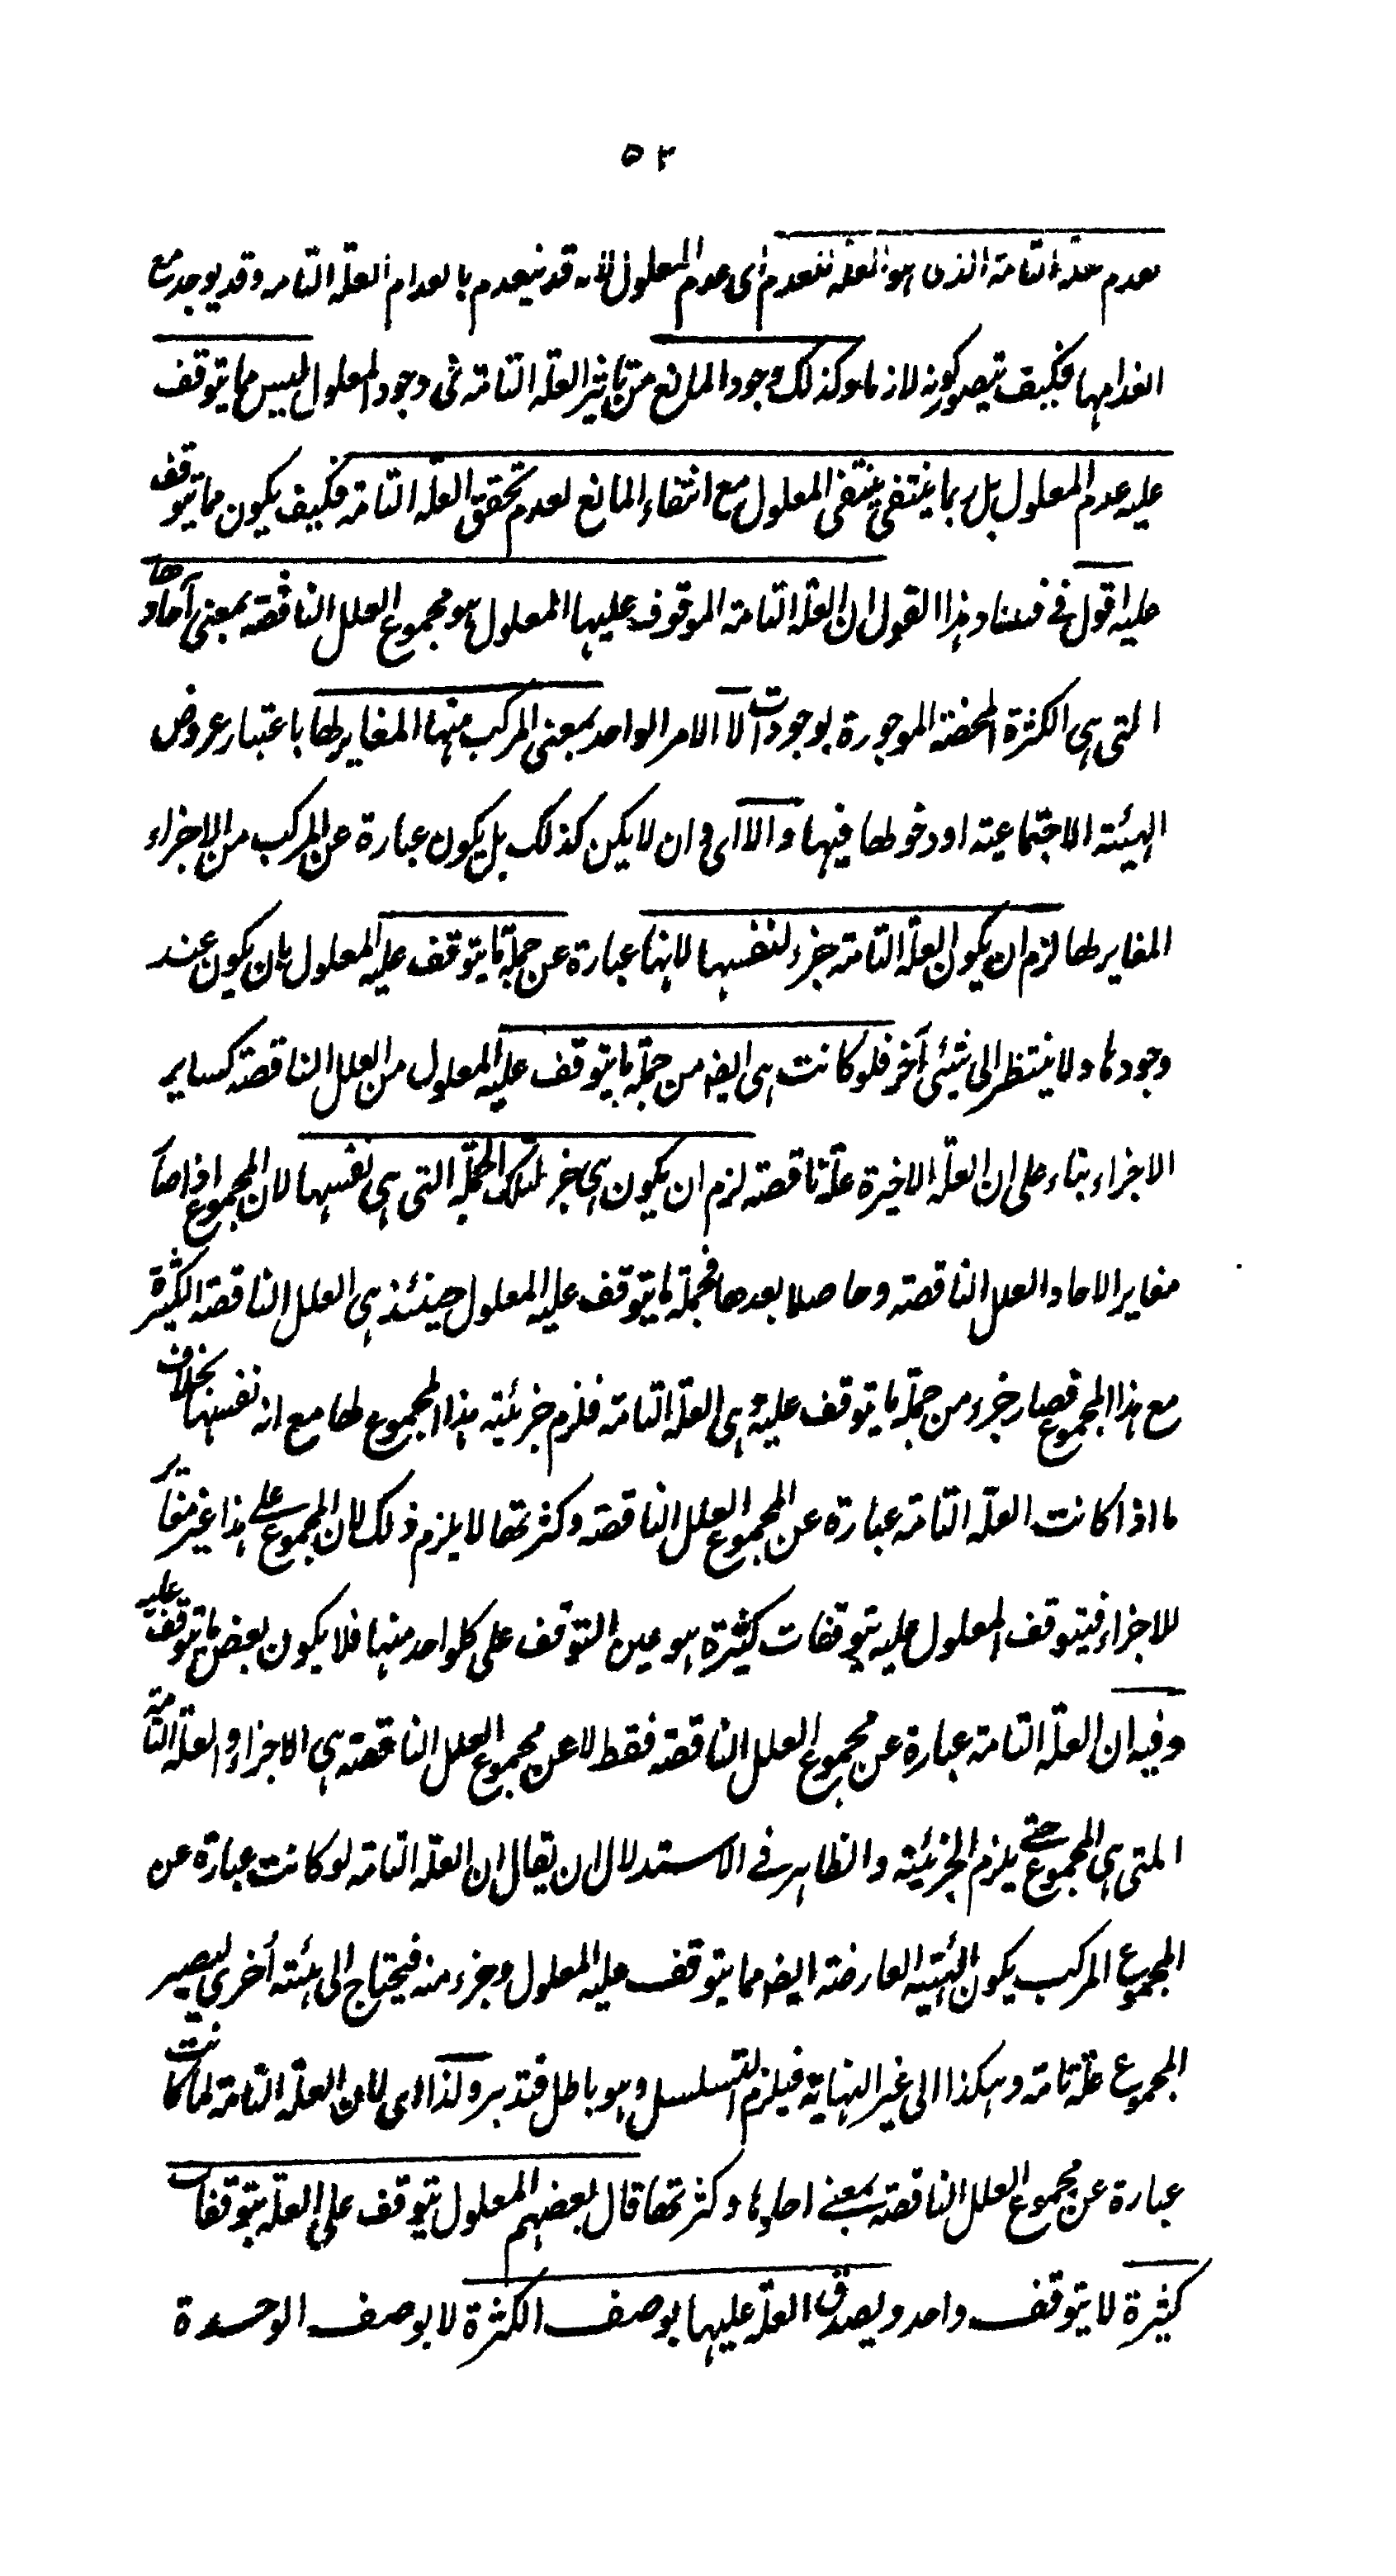 ٥٢
لعدم علة التامة الذى هو العلة لنعدم اى عدم المعلول لانه قد ينعدم بانعدام العلة التامه وقد يوجد مع
انعدامها فكيف يتصور كونه لازما وكذلك وجود المانع من تاثير العلة التامة فى وجود المعلول ليس مما يتوقف
عليه عدم المعلول بل ربما ينتفى ينتفى المعلول مع انتفاء المانع لعدم تحقق العلة التامة فكيف يكون مما يتوقف
عليه اقول فى فساد هذا القول ان العلة التامة الموقوف عليها المعلول هو مجموع العلل الناقصة بمعنى آحادها
التى هى الكثرة المحضة الموجورة بوجودات لا الامر الواحد بمعنى المركب منها المغاير لها باعتبار عروض
الهيئة الاجتماعية او دخولها فيها والا اى و ان لا يكن كذلك بل يكون عبارة عن المركب من الاجزاء
المغاير لها لزم ان يكون العلة التامة جزء لنفسها لانها عبارة عن جملة ما يتوقف عليه المعلول بان يكون عند
وجودها ولا ينتظر الى شئى آخر فلو كانت هى ايضا من جملة ما يتوقف عليه المعلول من العلل الناقصة كساير
الاجزاء بناء على ان العلة الاخيرة علة ناقصة لزم ان يكون هى جزء لتلك الجملة التى هى نفسها لان المجموع اذا صار
مغاير الاحاد العلل الناقصة وحاصلا بعدها فجملة ما يتوقف عليه المعلول حينئذ هى العلل الناقصة الكثيرة
مع هذا المجموع فصار جزء من جملة ما يتوقف عليه وهى العلة التامة فلزم جزئية هذا المجموع لها مع انه نفسها بخلاف
ما اذا كانت العلة التامة عبارة عن المجموع العلل الناقصة وكثرتها لا يلزم ذلك لان المجموع على هذا غير مغاير
للاجزاء فيتوقف المعلول عليه بتوقفات كثيرة هو عين التوقف على كلواحد منها فلا يكون بعض ما يتوقف عليه
وفيه ان العلة التامة عبارة عن مجموع العلل الناقصة فقط لا عن مجموع العلل الناقصة هى الاجزاء والعلة التامة
التى هى المجموع حتى يلزم الجزئية والظاهر فى الاستدلال ان يقال ان العلة التامة لو كانت عبارة عن
المجموع المركب يكون الهئية العارضة ايضا مما يتوقف عليه المعلول وجزء منه فيحتاج الى هيئة أخرى ليصير
المجموع علة تامة وهكذا الى غير النهاية فيلزم التسلسل وهو باطل فتدبر ولذا اى لان العلة التامة لما كانت
عبارة عن مجموع العلل الناقصة بمعنے احادها وكثرتها قال بعضهم المعلول يتوقف على العلة بتوقفات
كثيرة لا بتوقف واحد ويصدق العلة عليها بوصف الكثرة لا بوصف الوحدة